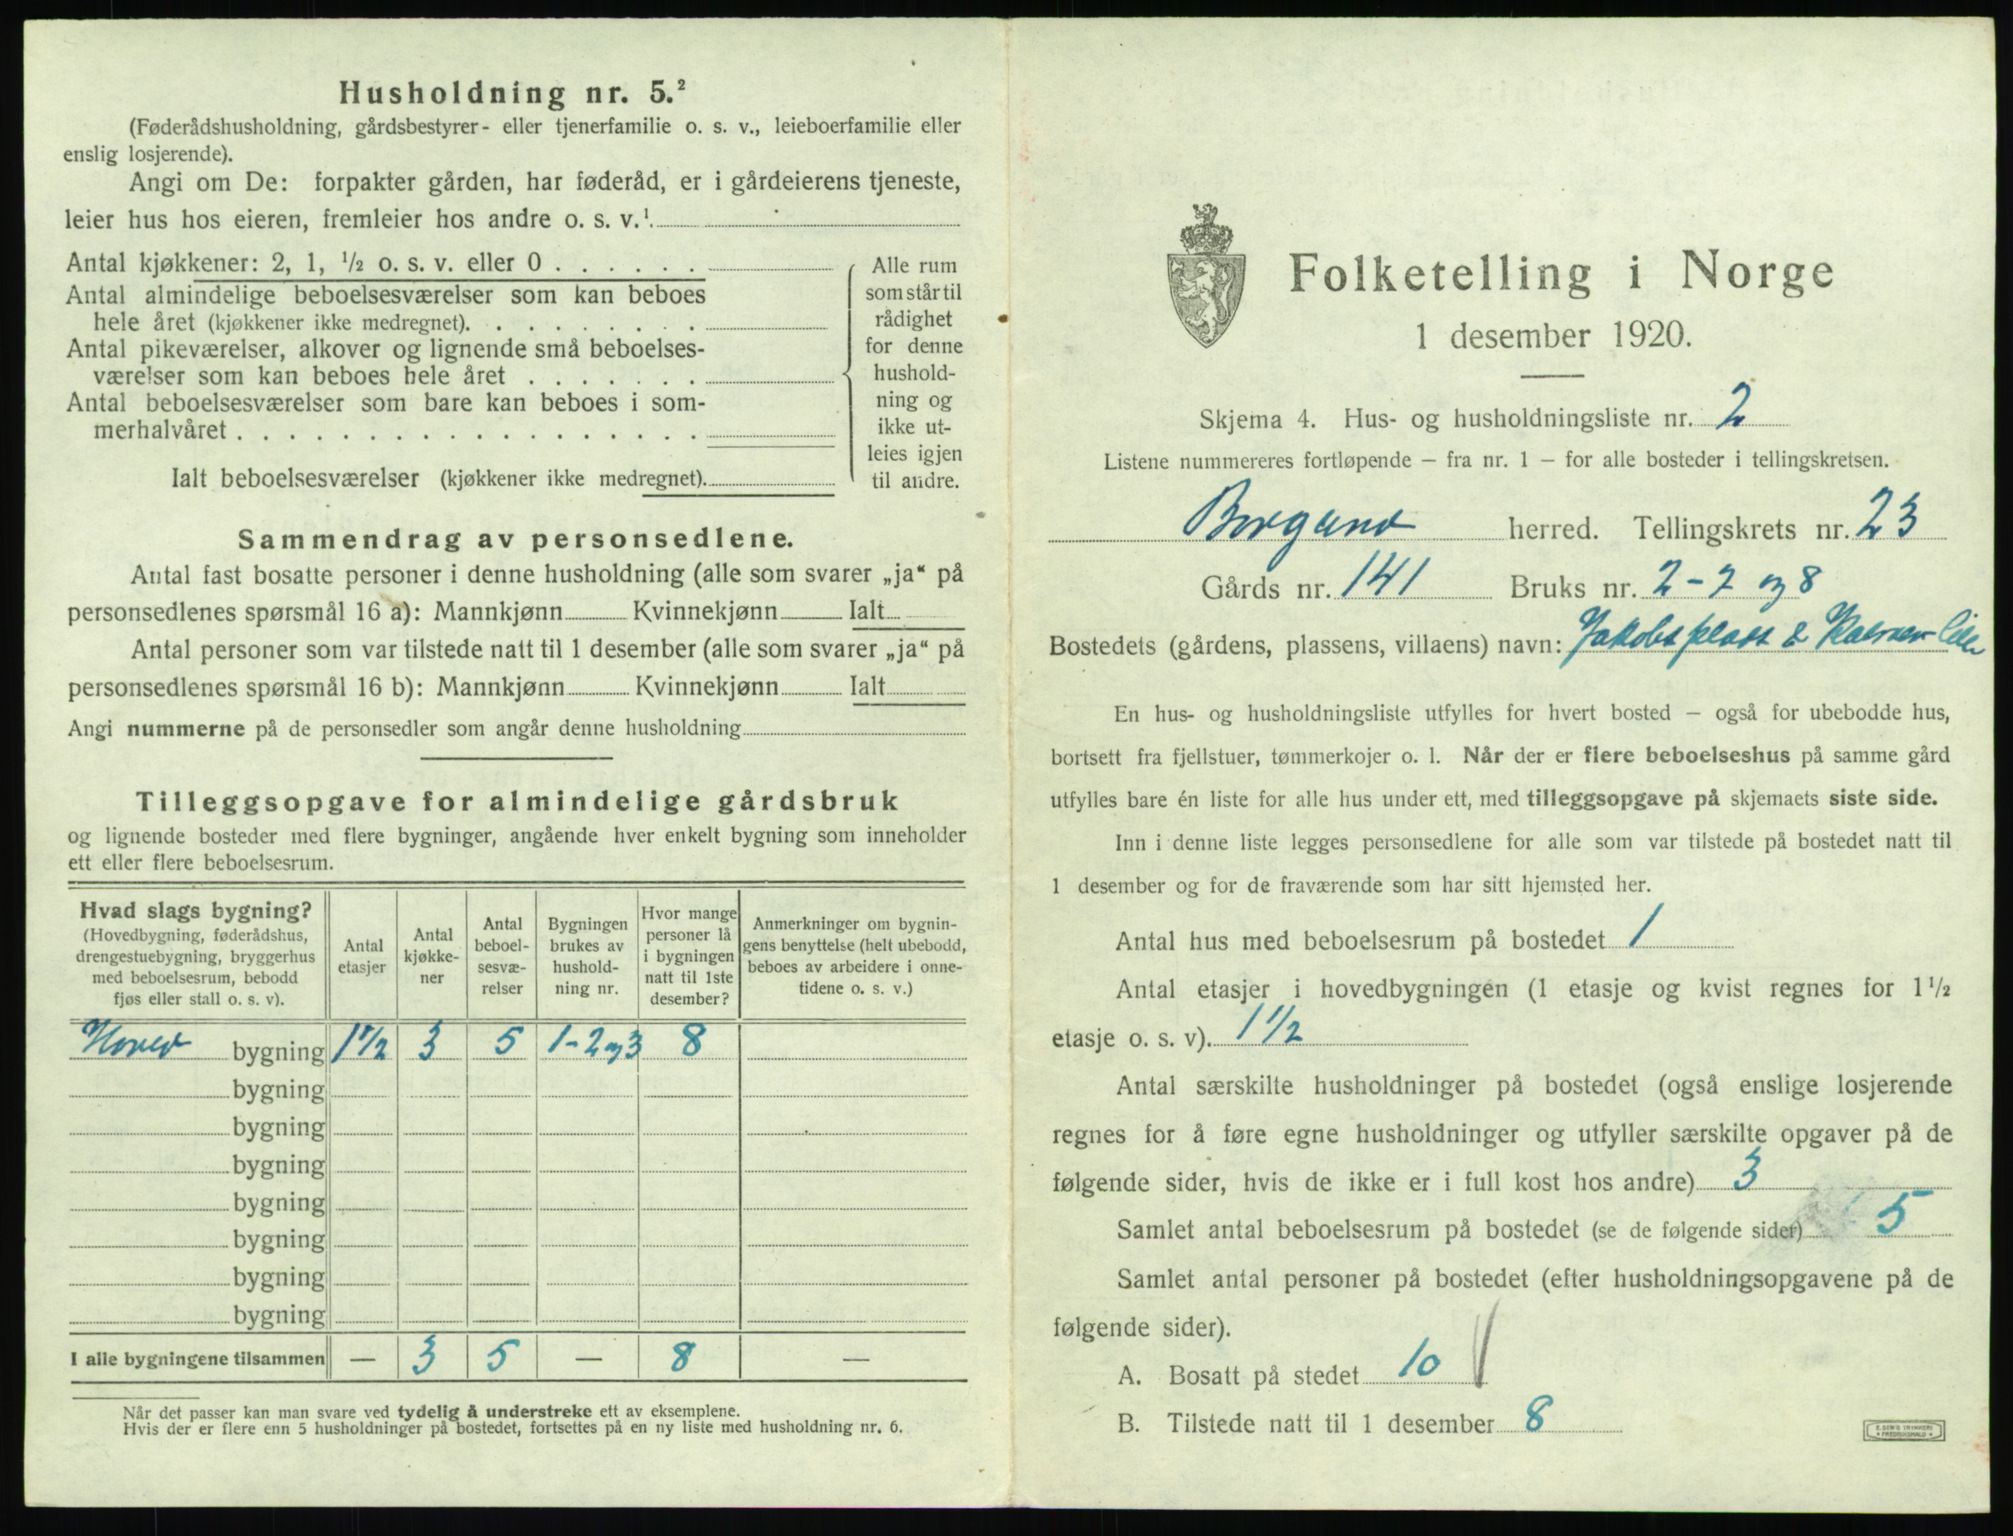 Husholdning nr. 5.²
(Føderådshusholdning, gårdsbestyrer- eller tjenerfamilie o. s. v., leieboerfamilie eller
enslig losjerende).
Angi om De: forpakter gården, har føderåd, er i gårdeierens tjeneste,
leier hus hos eieren, fremleier hos andre o. s. v.¹
Antal kjøkkener: 2, 1, ½ o. s. v. eller 0 . . . . . .
Antal almindelige beboelsesværelser som kan beboes
hele året (kjøkkener ikke medregnet). . . . . . . . .
Antal pikeværelser, alkover og lignende små beboelses-
værelser som kan beboes hele året . . . . . . .
Antal beboelsesværelser som bare kan beboes i som-
merhalvåret . . . . . . . . . . . . . . . . . .
Ialt beboelsesværelser (kjøkkener ikke medregnet).
Alle rum
som står til
rådighet
for denne
hushold-
ning og
ikke ut-
leies igjen
til andre.
Sammendrag av personsedlene.
Antal fast bosatte personer i denne husholdning (alle som svarer „ja“ på
personsedlenes spørsmål 16 a): Mannkjønn Kvinnekjønn Ialt
Antal personer som var tilstede natt til 1 desember (alle som svarer „ja“ på
personsedlenes spørsmål 16 b): Mannkjønn Kvinnekjønn Ialt
Angi nummerne på de personsedler som angår denne husholdning
Tilleggsopgave for almindelige gårdsbruk
og lignende bosteder med flere bygninger, angående hver enkelt bygning som inneholder
ett eller flere beboelsesrum.
Hvad slags bygning?
(Hovedbygning, føderådshus,
drengestuebygning, bryggerhus
med beboelsesrum, bebodd
fjøs eller stall o. s. v).
Antal
etasjer
Antal
kjøkke-
ner
Antal
beboel-
sesvæ-
relser
Bygningen
brukes av
hushold-
ning nr.
Hvor mange
personer lå
i bygningen
natt til 1ste
desember?
Anmerkninger om bygnin-
gens benyttelse (helt ubebodd,
beboes av arbeidere i onne-
tidene o. s. v.)
Hoved bygning 1 1/2 3 5 1-2 og 3 8
bygning
bygning
bygning
bygning
bygning
bygning
bygning
I alle bygningene tilsammen — 3 5 — 8 —
Når det passer kan man svare ved tydelig å understreke ett av eksemplene.
Hvis der er flere enn 5 husholdninger på bostedet, fortsettes på en ny liste med husholdning nr. 6.
Folketelling i Norge
1 desember 1920.
Skjema 4. Hus- og husholdningsliste nr. 2
Listene nummereres fortløpende — fra nr. 1 — for alle bosteder i tellingskretsen.
Borgund herred. Tellingskrets nr. 23
Gårds nr. 141 Bruks nr. 2-7 og 8
Bostedets (gårdens, plassens, villaens) navn: Jakobsplass &
En hus- og husholdningsliste utfylles for hvert bosted — også for ubebodde hus,
bortsett fra fjellstuer, tømmerkojer o. l. Når der er flere beboelseshus på samme gård
utfylles bare én liste for alle hus under ett, med tilleggsopgave på skjemaets siste side.
Inn i denne liste legges personsedlene for alle som var tilstede på bostedet natt til
1 desember og for de fraværende som har sitt hjemsted her.
Antal hus med beboelsesrum på bostedet 1
Antal etasjer i hovedbygningen (1 etasje og kvist regnes for 1½
etasje o. s. v). 1 1/2
Antal særskilte husholdninger på bostedet (også enslige losjerende
regnes for å føre egne husholdninger og utfyller særskilte opgaver på de
følgende sider, hvis de ikke er i full kost hos andre) 3
Samlet antal beboelsesrum på bostedet (se de følgende sider) 5
Samlet antal personer på bostedet (efter husholdningsopgavene på de
følgende sider).
A. Bosatt på stedet 10
B. Tilstede natt til 1 desember 8